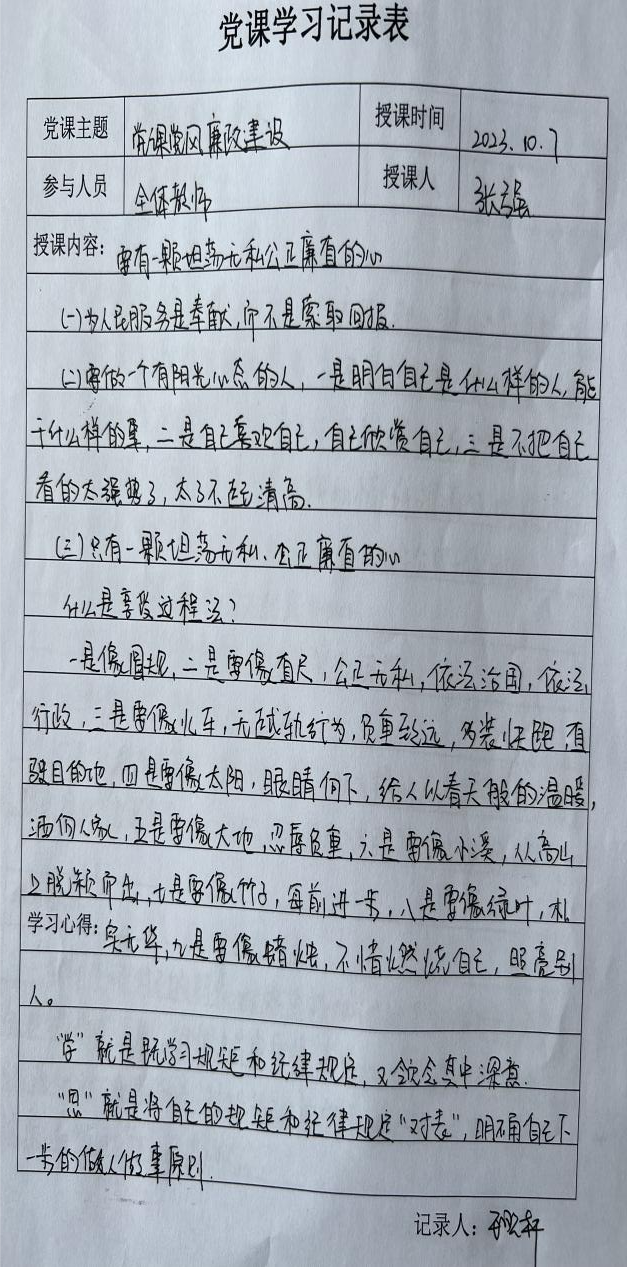 党课学习记录表
党课主题 党课党风廉政建设 授课时间 2023.10.7
参与人员 全体教师 授课人 张强
授课内容：要有一颗坦荡无私公正廉直的心
(一)为人民服务是奉献，而不是索取回报.
(二)要做一个有阳光心态的人，一是明白自己是什么样的人，能
干什么样的事，二是自己喜欢自己，自己欣赏自己，三是不把自己
看的太强势了，太了不起清高.
(三)只有一颗坦荡无私、公正廉直的心
什么是享受过程法？
一是像圆规，二是要像直尺，公正无私，依法治国，依法
行政，三是要像火车，无越轨行为，负重致远，多装快跑，直
驶目的地，四是要像太阳，眼睛向下，给人以春天般的温暖，
洒向人家，五是要像大地，忍辱负重，六是要像小溪，从高山
上脱颖而出，七是要像竹子，每前进一步，八是要像绿叶，朴
学习心得：实无华，九是要像蜡烛，不惜燃烧自己，照亮别
人。
“学”就是既学习规矩和纪律规定，又领会其中深意.
“思”就是将自己的规矩和纪律规定“对表”，明确自己下
一步的做人做事原则.
记录人：